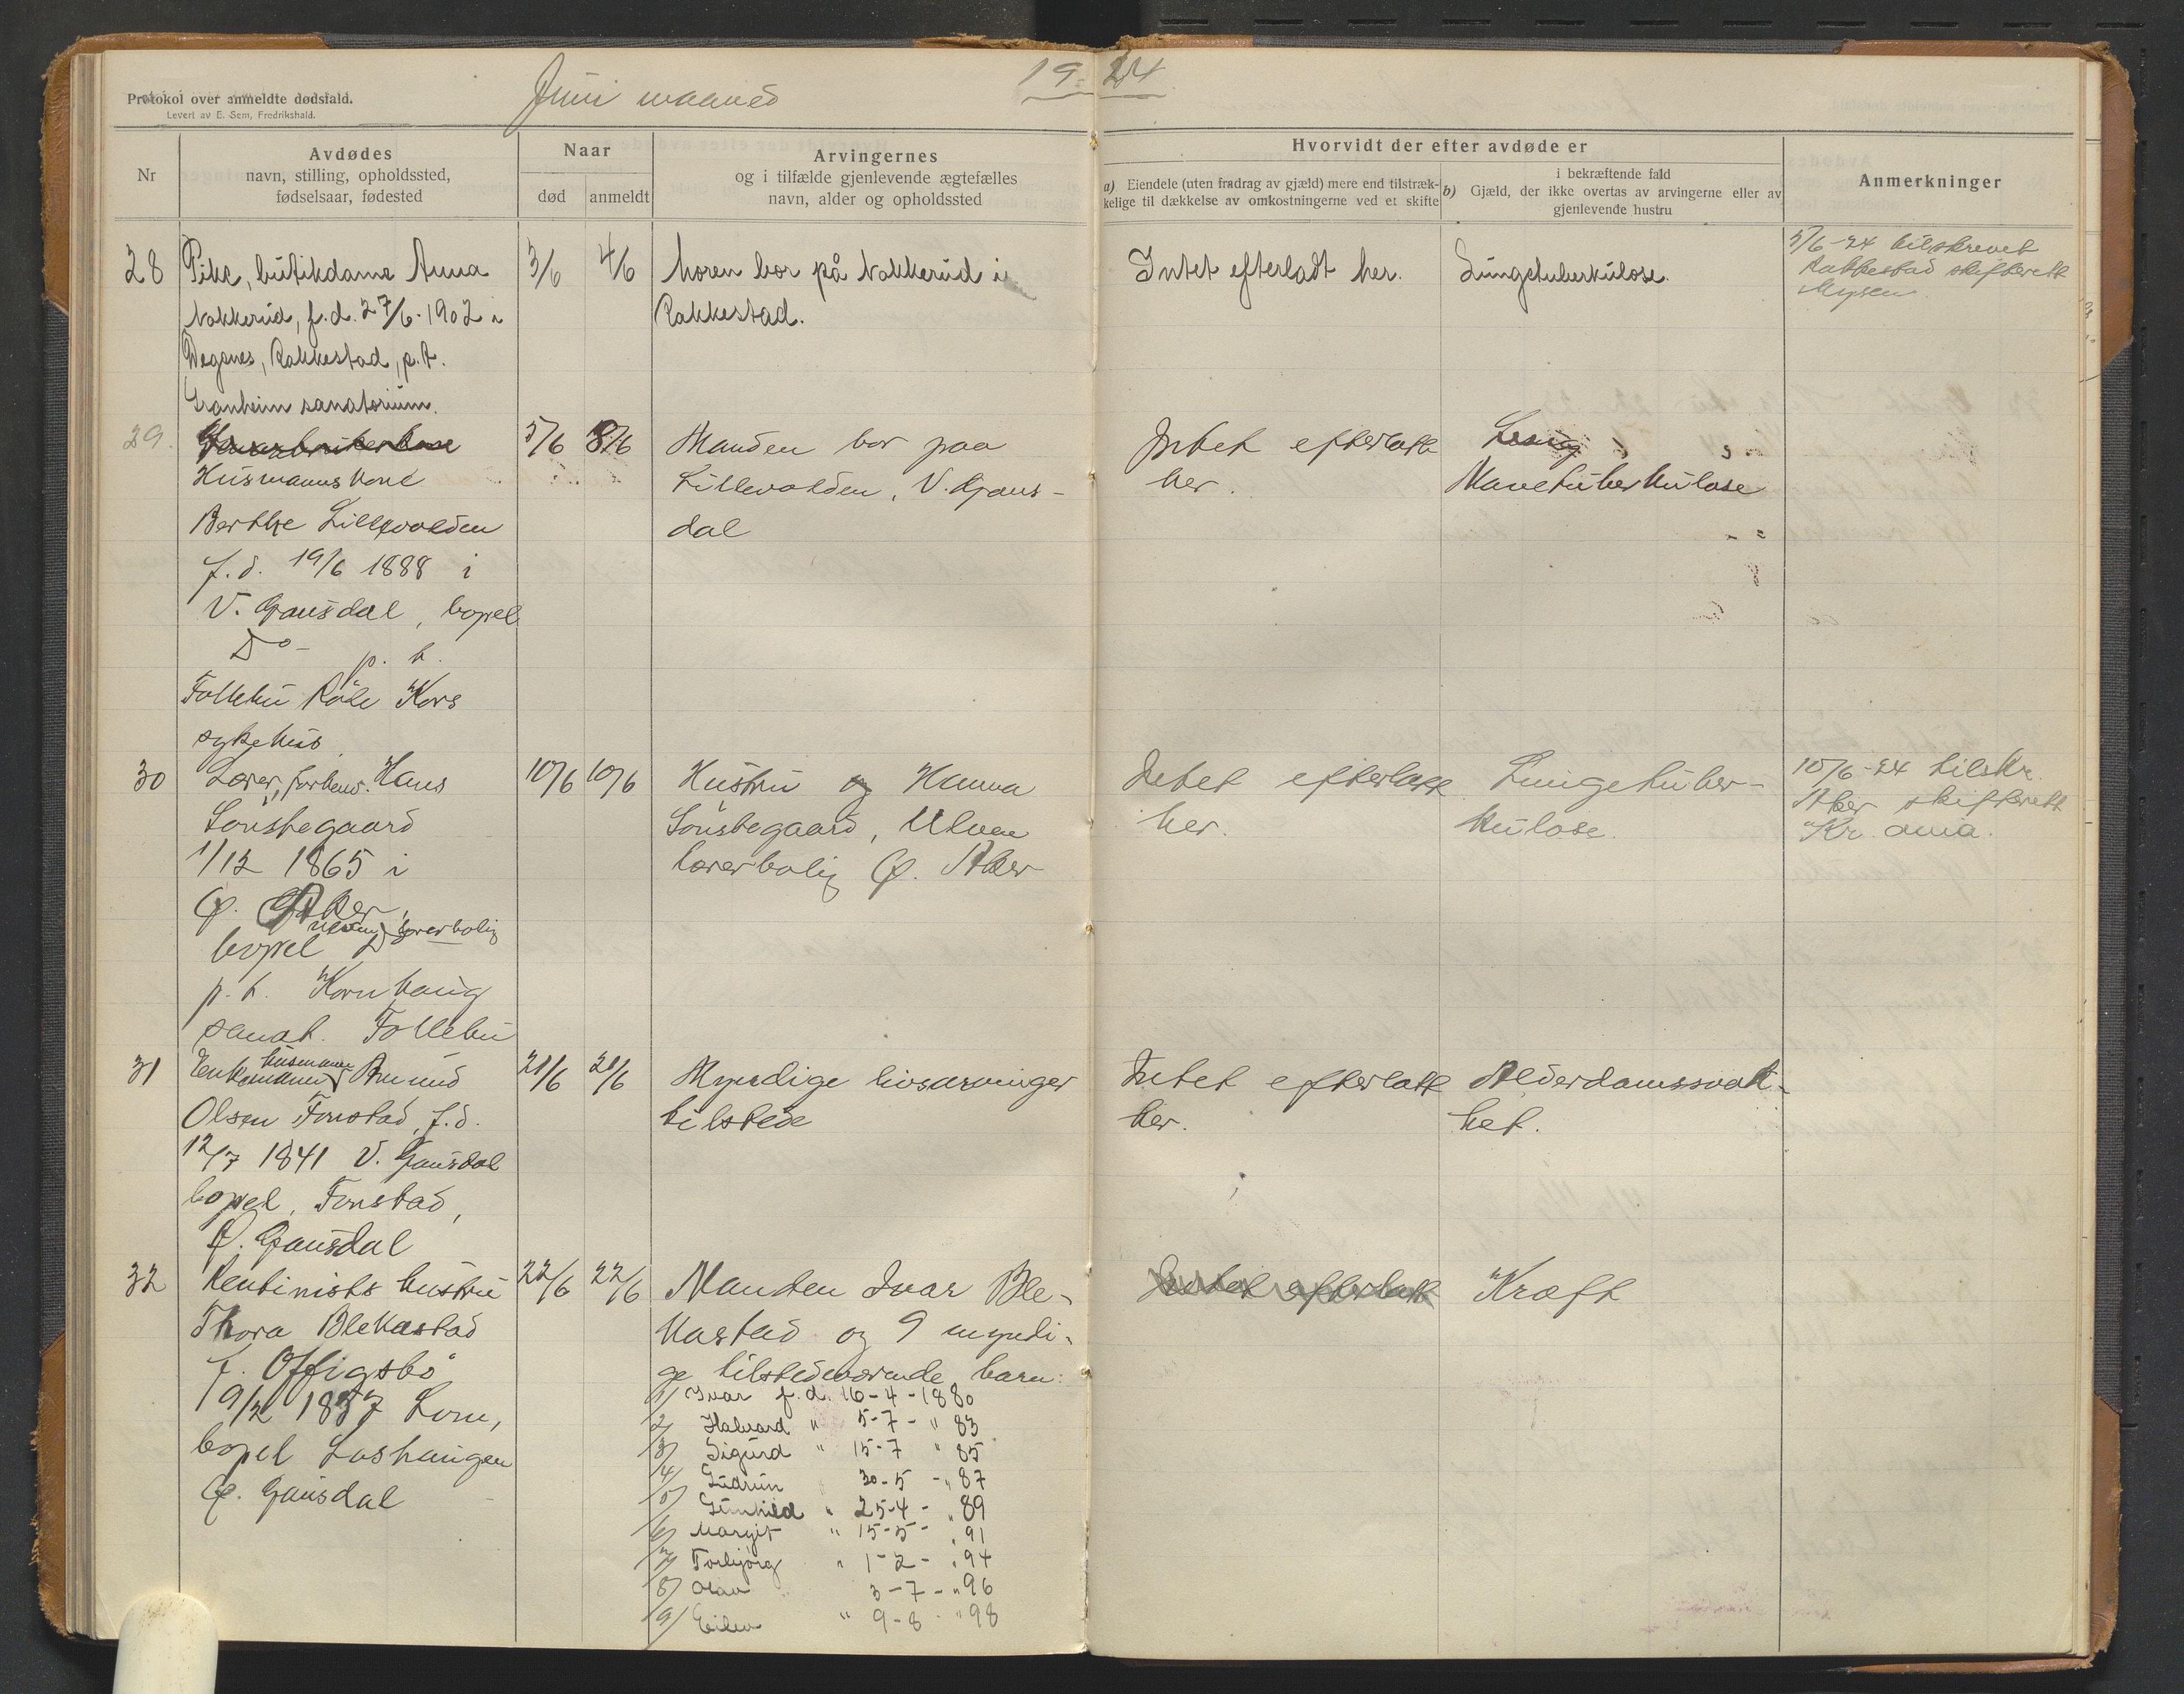 Protokol over anmeldte dødsfald.
Levert av E. Sem, Fredrikshald.
Juni maaned
19-24
Nr
Avdødes
navn, stilling, opholdssted,
fødselsaar, fødested
Naar
død
anmeldt
Arvingernes
og i tilfælde gjenlevende ægtefælles
navn, alder og opholdssted
Hvorvidt der efter avdøde er
a) Eiendele (uten fradrag av gjæld) mere end tilstræk-
kelige til dækkelse av omkostningerne ved et skifte
i bekræftende fald
b) Gjæld, der ikke overtas av arvingerne eller av
gjenlevende hustru
Anmerkninger
28
Pike, butikdame Anna
Nakkerud, f.d. 27/6-1902 i
Degsnes, Rakkestad, p.t.
Granheim sanatorium.
3/6
4/6
Moren bor på Nakkerud i
Rakkestad.
Intet efterladt her.
Lungetuberkulose.
5/6-24 tilskrevet
Rakkestad skifterett
Mysen
29.
Husmannskone
Berthe Lillevolden
f.d. 19/6 1888 i
V. Gausdal, bopel
Do - p. t.
Follebu Røde Kors
sykehus
5/6
8/6
Manden bor paa
Lillevolden, V. Gaus-
dal
Intet efterlatt
her.
Lung
Mavetuberkulose
30
Lærer, forhenv. Hans
Sønstegaard
1/12 1865 i
Ø. Aker,
Ulven lærerbolig
bopel
p. t. Kornhaug
sanat. Follebu
10/6
10/6
Hustru og Hanna
Sønstegaard, Ulven
lærerbolig Ø. Aker
Intet efterlatt
her.
Lungetuber-
kulose.
10/6-24 tilskr.
Aker skifterett
Kr.ania.
31
husmann
Enkemann Amund
Olsen Fonstad, f.d.
12/7 1841 V. Gausdal
bopel, Fonstad,
Ø. Gausdal
21/6
21/6
Myndige livsarvinger
tilstede
Intet efterlatt
her.
Alderdomssvak-
het.
32
Rentinists hustru
Thora Blekastad
f. Offigsbø
19/2 1857 Lom,
bopel Loshaugen
Ø. Gausdal
22/6
22/6
Manden Ivar Ble-
kastad og 9 myndi-
ge tilstedeværende barn:
1/ Ivar f.d. 16-4-1880
2/ Halvard " 5-7-" 83
3/ Sigurd " 15-7 " 85
4/ Gudrun 30-5 -" 87
5/ Gunhild " 25-4- " 89
6/ Margit " 15-5- " 91
7/ Torbjørg " 1-2- " 94
8/ Olav 3-7-" 96
9/ Eilev " 9-8- " 98
Intet efterlatt
Kræft